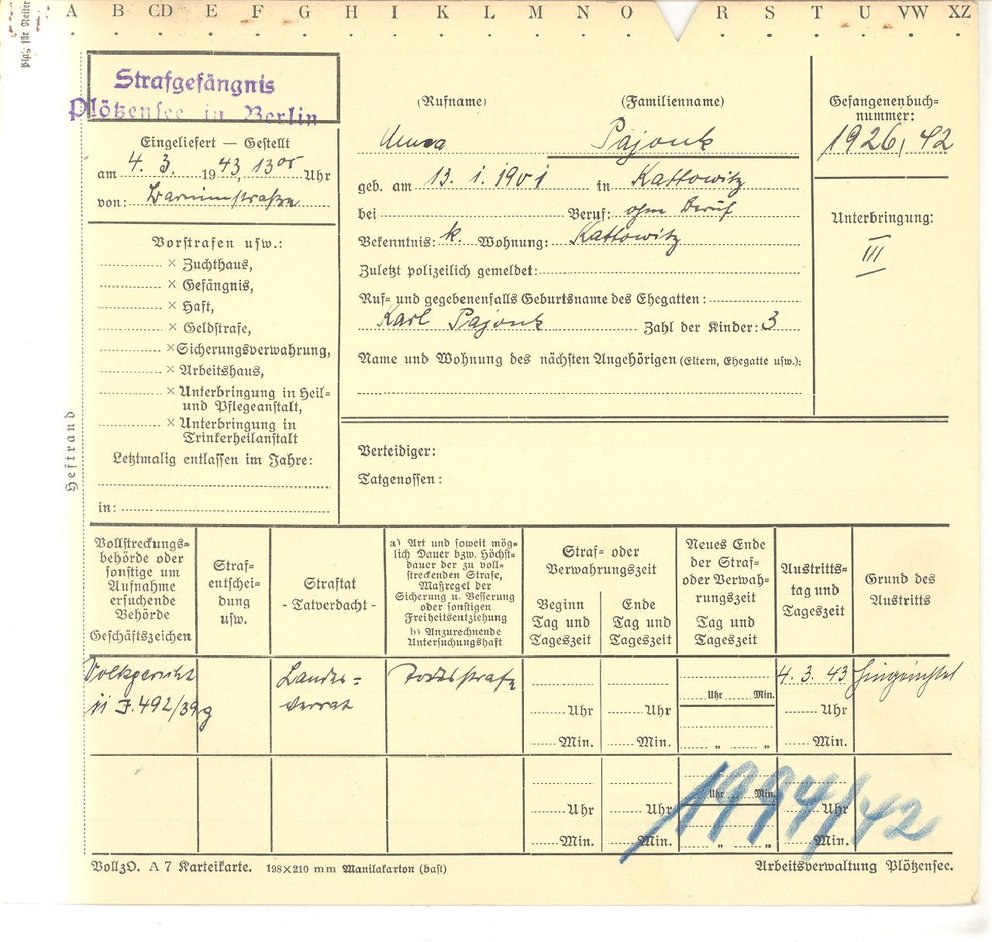 A B CD E F G H I K L M N O R S T U VW XZ
Strafgefängnis
Plötzensee in Berlin
Eingeliefert — Gestellt
am 4. 3. 1943, 13⁰⁵ Uhr
von: Barnimstraße
Vorstrafen usw.:
× Zuchthaus,
× Gefängnis,
× Haft,
× Geldstrafe,
× Sicherungsverwahrung,
× Arbeitshaus,
× Unterbringung in Heil-
und Pflegeanstalt,
× Unterbringung in
Trinkerheilanstalt
Letztmalig entlassen im Jahre:
in:
Heftrand
(Rufname) (Familienname)
Pajonk
geb. am 13. 1. 1901 in Kattowitz
bei Beruf: ohne Beruf
Bekenntnis: k. Wohnung: Kattowitz
Zuletzt polizeilich gemeldet:
Ruf- und gegebenenfalls Geburtsname des Ehegatten:
Karl Pajonk Zahl der Kinder: 3
Name und Wohnung des nächsten Angehörigen (Eltern, Ehegatte usw.):
Gefangenenbuch-
nummer:
1926/42
Unterbringung:
III
Verteidiger:
Tatgenossen:
Vollstreckungs-
behörde oder
sonstige um
Aufnahme
ersuchende
Behörde
Geschäftszeichen
Straf-
entschei-
dung
usw.
Straftat
- Tatverdacht -
a) Art und soweit mög-
lich Dauer bzw. Höchst-
dauer der zu voll-
streckenden Strafe,
Maßregel der
Sicherung u. Besserung
oder sonstigen
Freiheitsentziehung
b) Anzurechnende
Untersuchungshaft
Straf- oder
Verwahrungszeit
Beginn
Tag und
Tageszeit
Ende
Tag und
Tageszeit
Neues Ende
der Straf-
oder Verwah-
rungszeit
Tag und
Tageszeit
Austritts-
tag und
Tageszeit
Grund des
Austritts
Volksgericht
II J. 492/39g
Landes-
verrat
Todesstrafe
Uhr
Min.
Uhr
Min.
Uhr Min.
" "
4. 3. 43
Uhr
Min.
hingerichtet
Uhr
Min.
Uhr
Min.
Uhr Min.
" "
Uhr
Min.
1994/42
VollzO. A 7 Karteikarte. 198×210 mm Manilakarton (bast)
Arbeitsverwaltung Plötzensee.